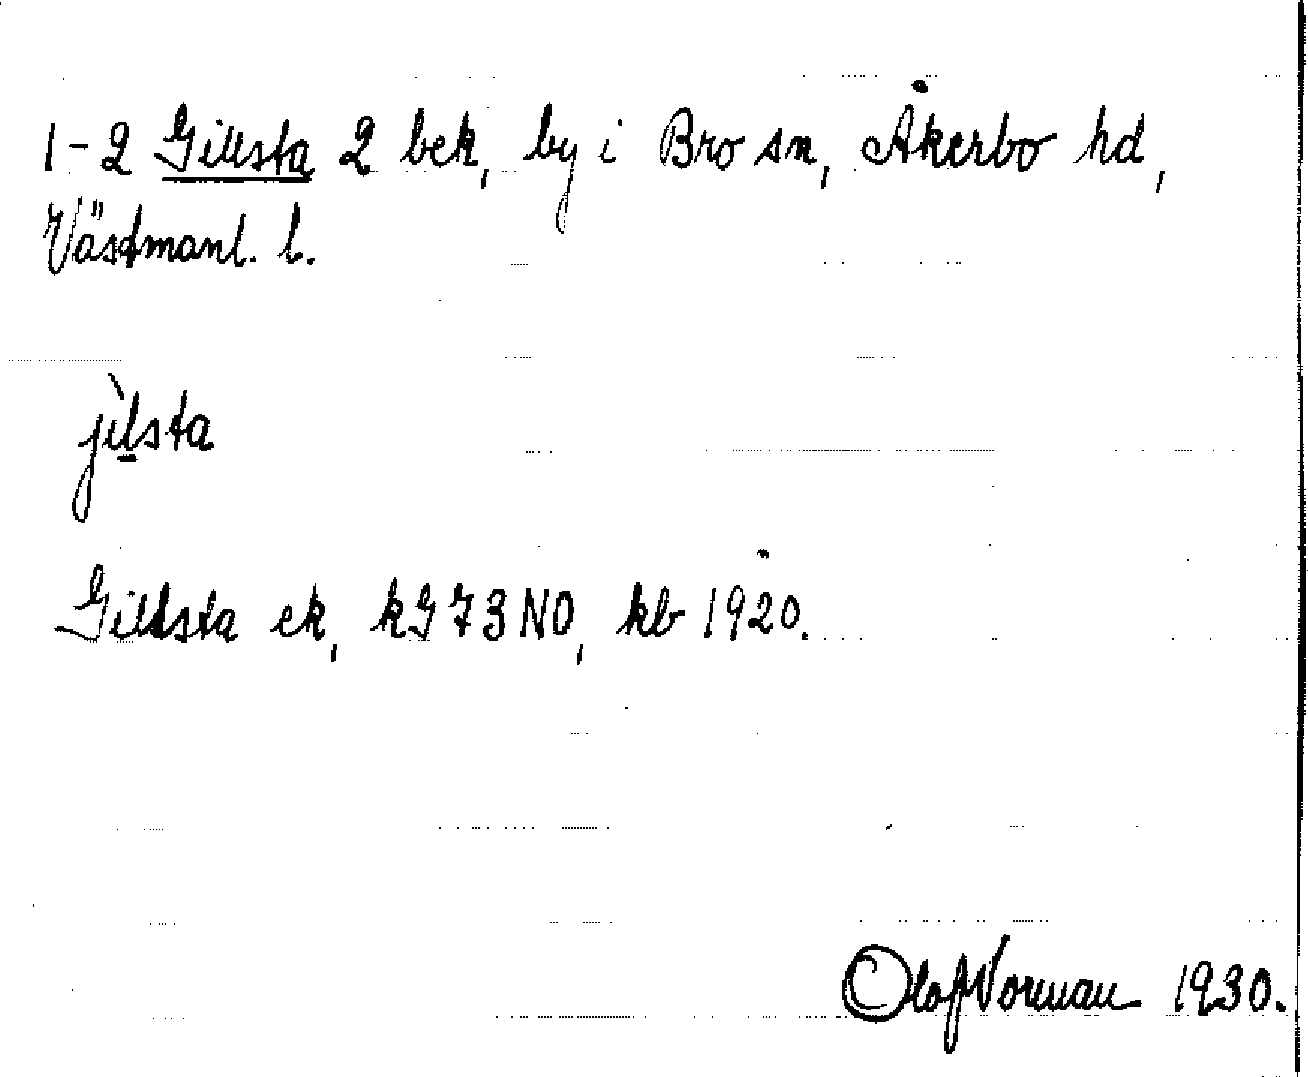 1-2 Gillsta 2 bek, by i Bro sn, Åkerbo hd,
Västmanl. l.
jìlsta
Gillsta ek, kG 73 NO, kb 1920.
Olof Norman 1930.